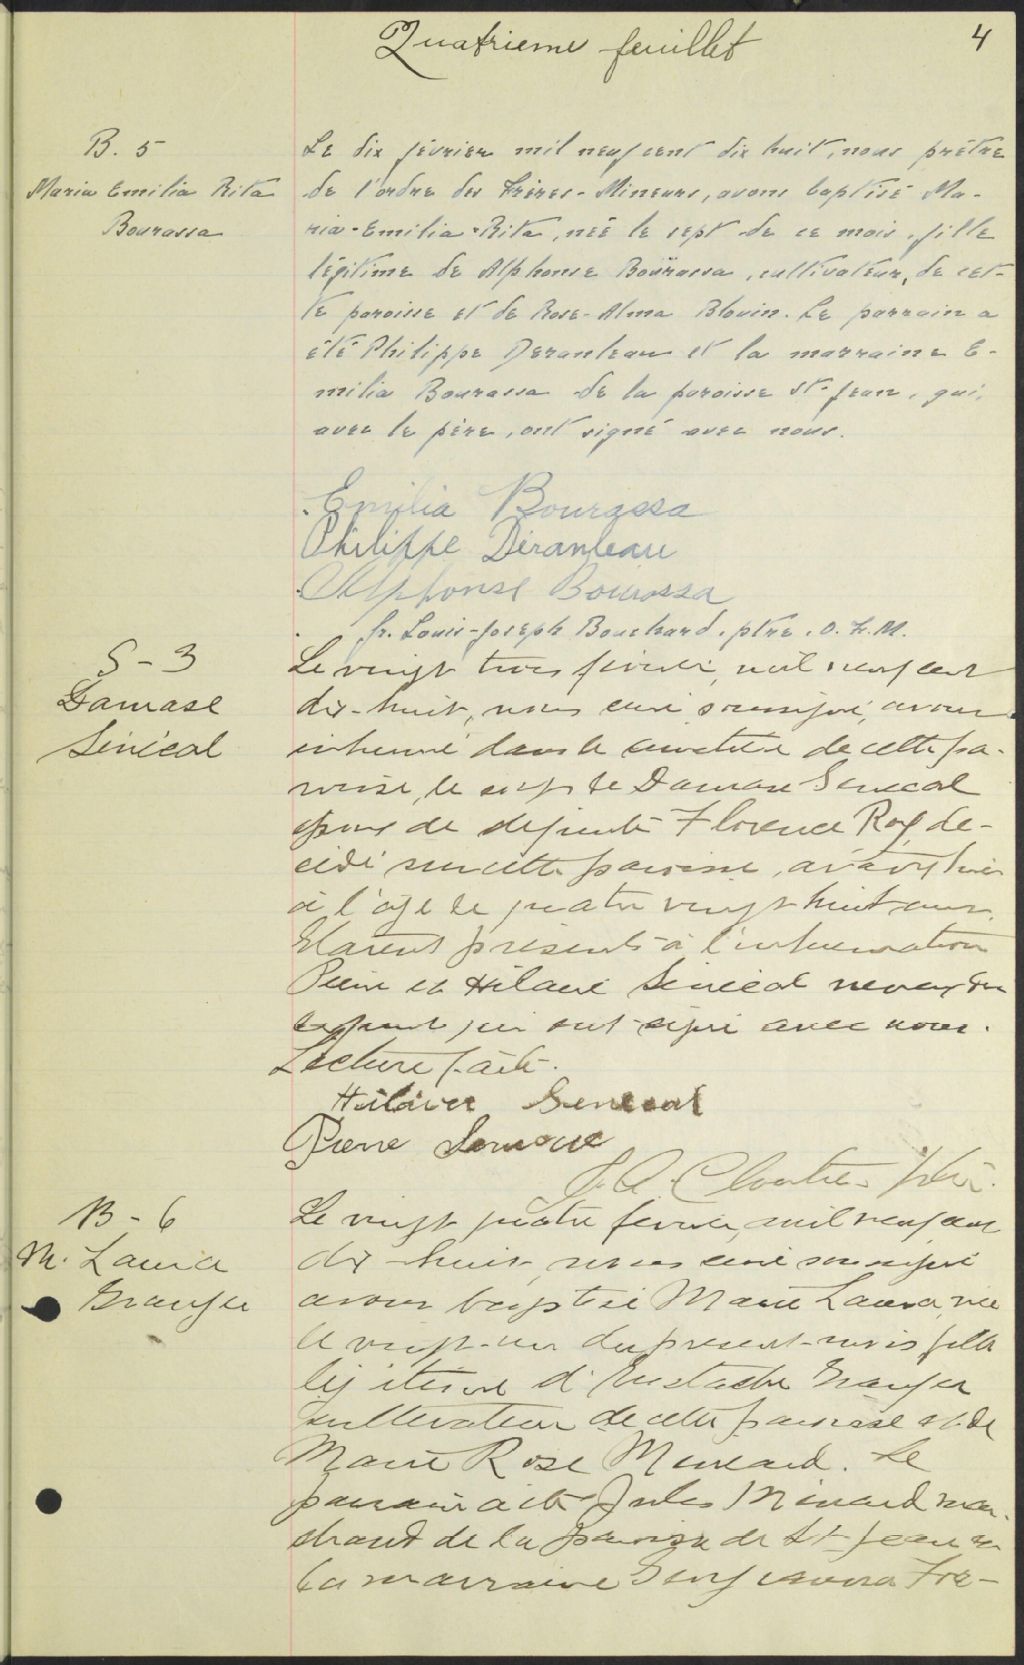 Quatrieme feuillet
4
B. 5
Maria Emilia Rita
Bourassa
Le dix février mil neuf cent dix huit, nous prêtre
de l'ordre des Frères-Mineurs, avons baptisé Ma-
ria-Emilia-Rita, née le sept de ce mois, fille
légitime de Alphonse Bourassa, cultivateur, de cet-
te paroisse et de Rose-Alma Blouin. Le parrain a
été Philippe Deranleau et la marraine E-
milia Bourassa de la paroisse St-Jean, qui,
avec le père, ont signé avec nous.
Emilia Bourassa
Philippe Deranleau
Alphonse Bourassa
fr. Louis-Joseph Bouchard, ptre, O.F.M.
S - 3
Damase
Sénécal
Le vingt trois février, mil neuf cent
dix-huit, nous curé soussigné, avons
inhumé dans le cimetière de cette pa-
roisse, le corps de Damase Senecal
époux de défunte Florence Roy dé-
cédé sur cette paroisse, avant hier
à l'âge de quatre vingt huit ans.
Etaient présents à l'inhumation
Pierre et Hilaire Sénécal neveux du
défunt qui ont signé avec nous.
Lecture faite.
Hilaire Senecal
Pierre
J. A. Cloutier Ptre.
B - 6
M. Laura
Granger
Le vingt quatre fevrier, mil neuf cent
dix-huit, nous curé soussigné
avons baptisé Marie Laura, née
le vingt-un du present mois fille
légitime d'Eustache Granger
cultivateur de cette paroisse et de
Marie Rose Menard. Le
parrain a été Jules Ménard mar-
chand de la paroisse de St Jean et
la marraine